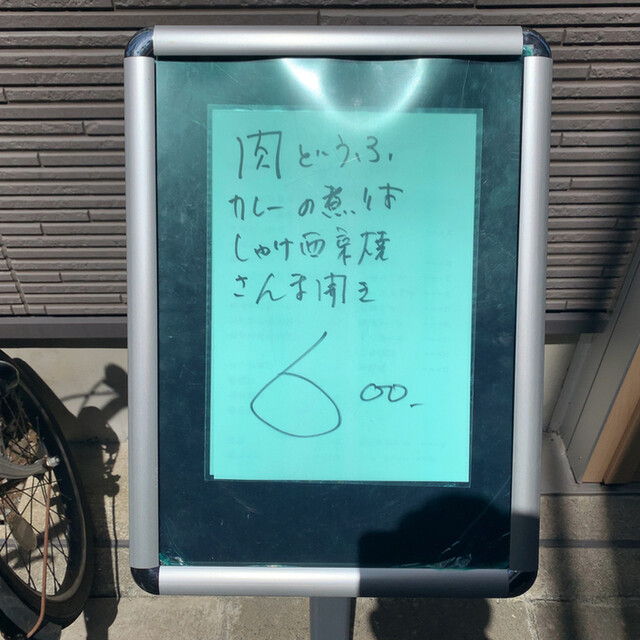 肉どうふ
カレーの煮付
しゃけ西京焼
さんま開き
600-